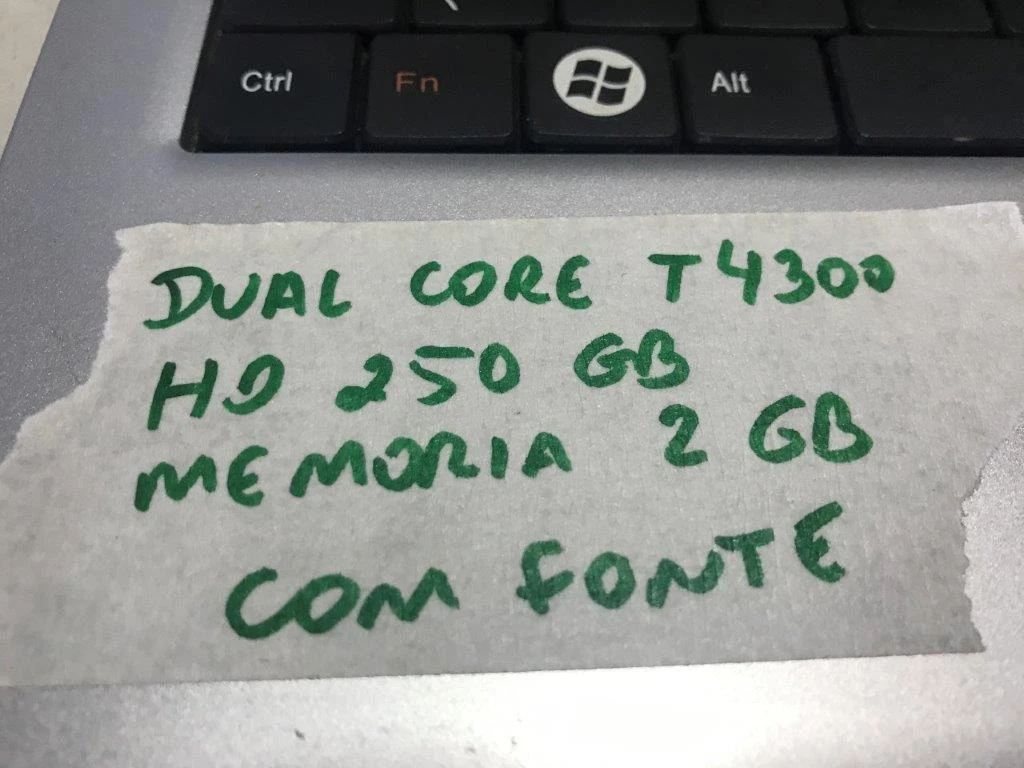 Ctrl Fn Alt
DUAL CORE T4300
HD 250 GB
MEMORIA 2 GB
COM FONTE